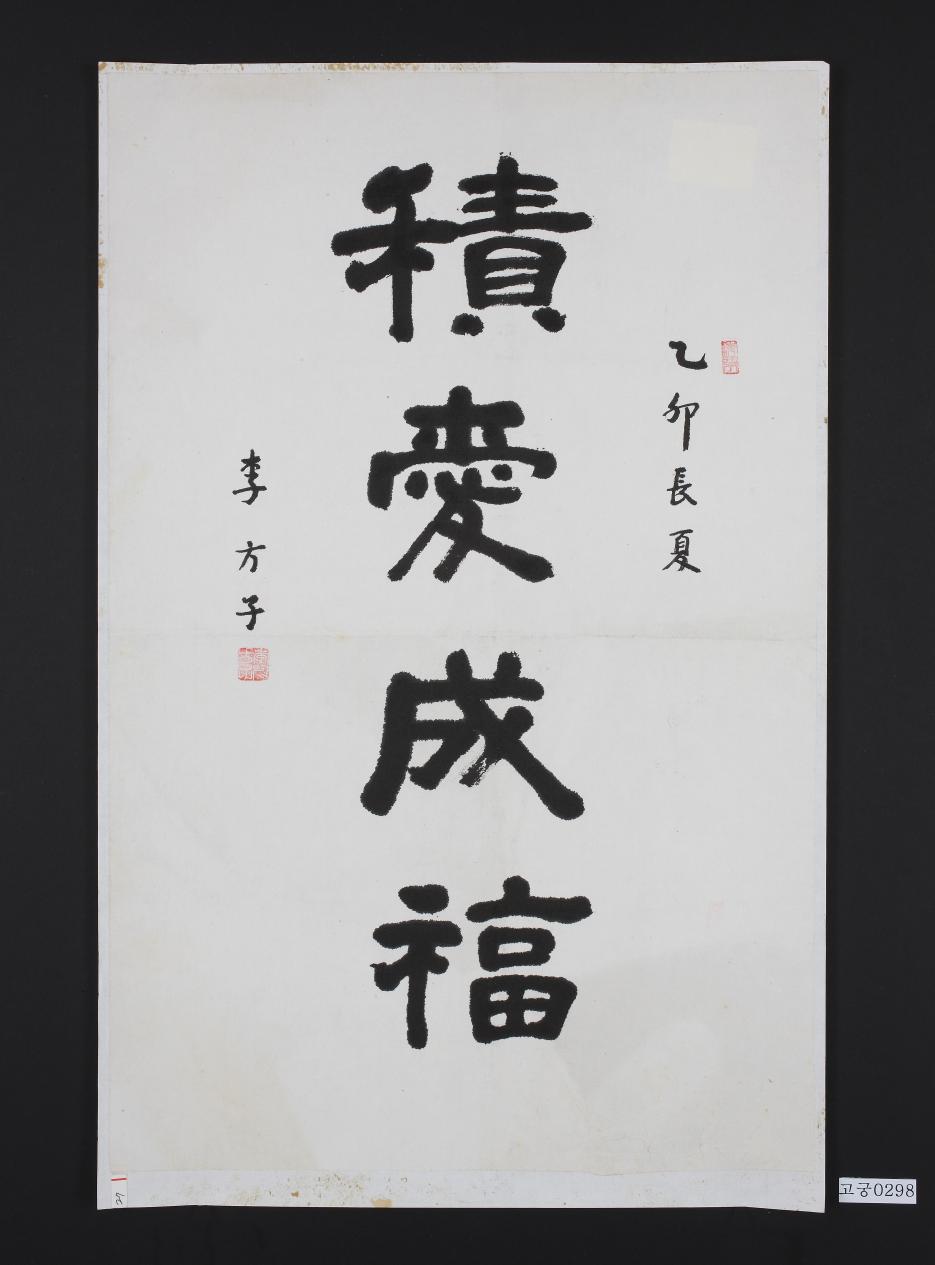 乙卯長夏
積愛成福
李方子
고궁0298
27